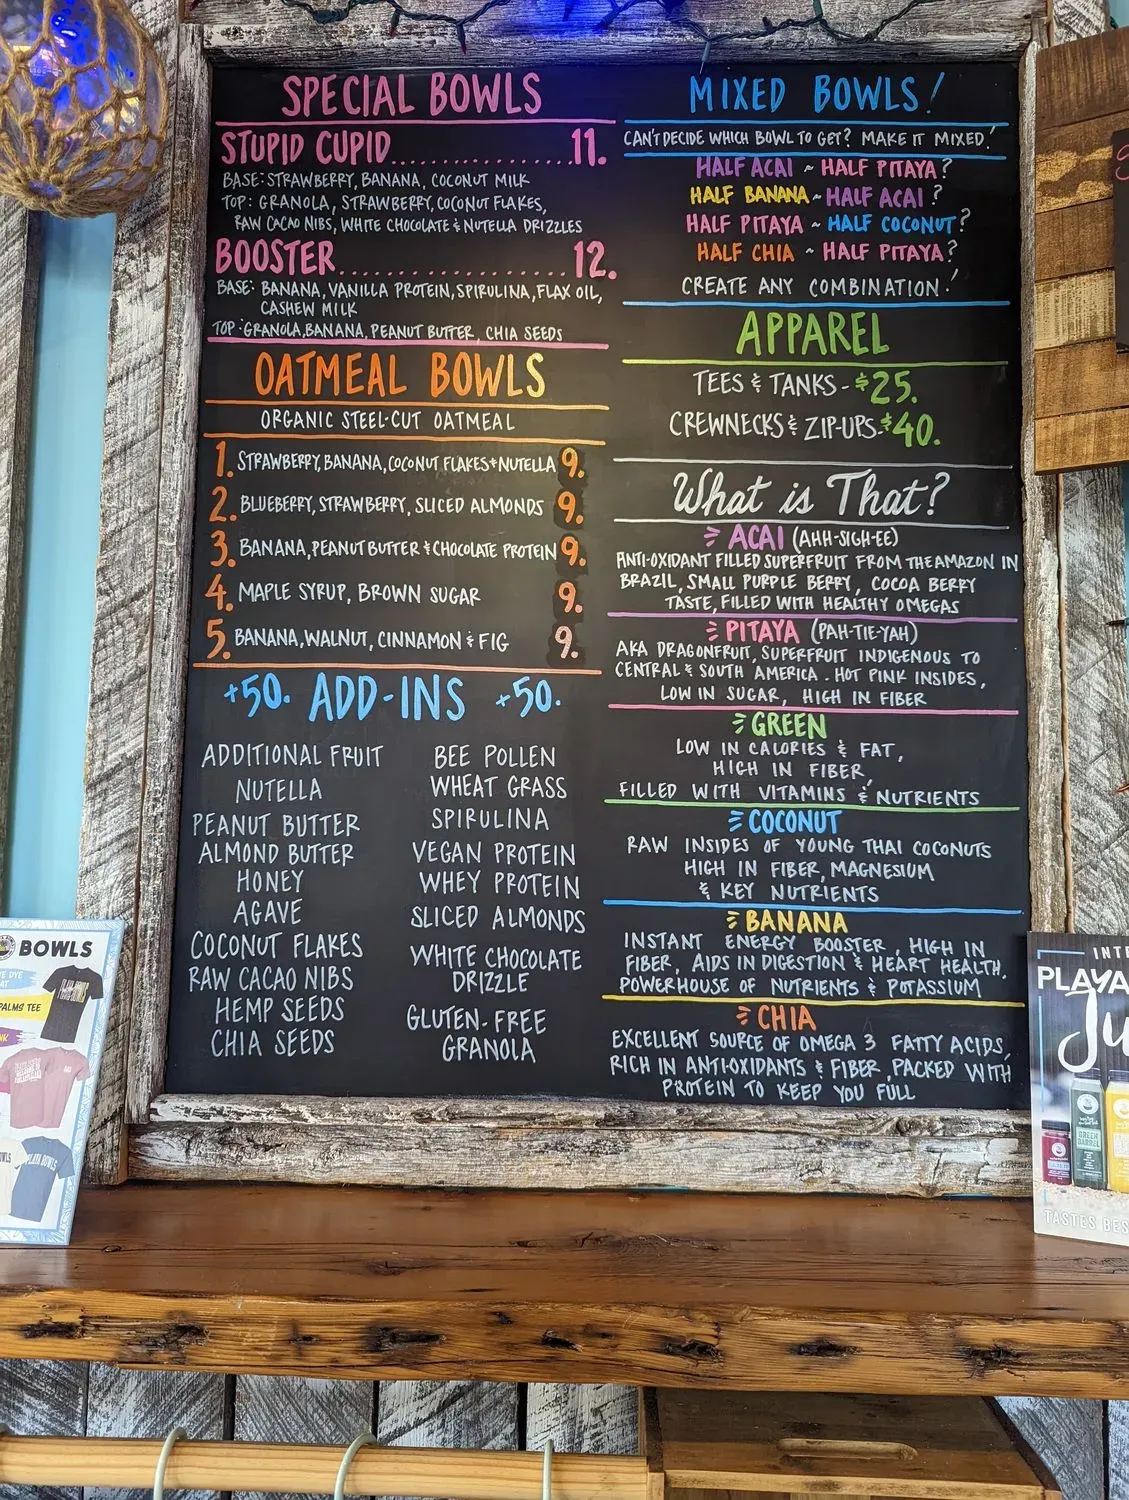 SPECIAL BOWLS
STUPID CUPID................11.
BASE: STRAWBERRY, BANANA, COCONUT MILK
TOP: GRANOLA, STRAWBERRY, COCONUT FLAKES,
RAW CACAO NIBS, WHITE CHOCOLATE & NUTELLA DRIZZLES
BOOSTER.....................12.
BASE: BANANA, VANILLA PROTEIN, SPIRULINA, FLAX OIL,
CASHEW MILK
TOP: GRANOLA, BANANA, PEANUT BUTTER, CHIA SEEDS
OATMEAL BOWLS
ORGANIC STEEL-CUT OATMEAL
1. STRAWBERRY, BANANA, COCONUT FLAKES + NUTELLA 9.
2. BLUEBERRY, STRAWBERRY, SLICED ALMONDS 9.
3. BANANA, PEANUT BUTTER & CHOCOLATE PROTEIN 9.
4. MAPLE SYRUP, BROWN SUGAR 9.
5. BANANA, WALNUT, CINNAMON & FIG 9.
+50. ADD-INS +50.
ADDITIONAL FRUIT
NUTELLA
PEANUT BUTTER
ALMOND BUTTER
HONEY
AGAVE
COCONUT FLAKES
RAW CACAO NIBS
HEMP SEEDS
CHIA SEEDS
BEE POLLEN
WHEAT GRASS
SPIRULINA
VEGAN PROTEIN
WHEY PROTEIN
SLICED ALMONDS
WHITE CHOCOLATE
DRIZZLE
GLUTEN-FREE
GRANOLA
MIXED BOWLS!
CAN'T DECIDE WHICH BOWL TO GET? MAKE IT MIXED!
HALF ACAI ~ HALF PITAYA?
HALF BANANA ~ HALF ACAI?
HALF PITAYA ~ HALF COCONUT?
HALF CHIA ~ HALF PITAYA?
CREATE ANY COMBINATION!
APPAREL
TEES & TANKS - $25.
CREWNECKS & ZIP-UPS - $40.
What is That?
ACAI (AHH-SIGH-EE)
ANTI-OXIDANT FILLED SUPERFRUIT FROM THE AMAZON IN
BRAZIL, SMALL PURPLE BERRY, COCOA BERRY
TASTE, FILLED WITH HEALTHY OMEGAS
PITAYA (PAH-TIE-YAH)
AKA DRAGONFRUIT, SUPERFRUIT INDIGENOUS TO
CENTRAL & SOUTH AMERICA. HOT PINK INSIDES,
LOW IN SUGAR, HIGH IN FIBER
GREEN
LOW IN CALORIES & FAT,
HIGH IN FIBER,
FILLED WITH VITAMINS & NUTRIENTS
COCONUT
RAW INSIDES OF YOUNG THAI COCONUTS
HIGH IN FIBER, MAGNESIUM
& KEY NUTRIENTS
BANANA
INSTANT ENERGY BOOSTER, HIGH IN
FIBER, AIDS IN DIGESTION & HEART HEALTH.
POWERHOUSE OF NUTRIENTS & POTASSIUM
CHIA
EXCELLENT SOURCE OF OMEGA 3 FATTY ACIDS,
RICH IN ANTI-OXIDANTS & FIBER, PACKED WITH
PROTEIN TO KEEP YOU FULL
BOWLS
PALMS TEE
PLAYA BOWLS
PLAYA
GREEN
TASTES